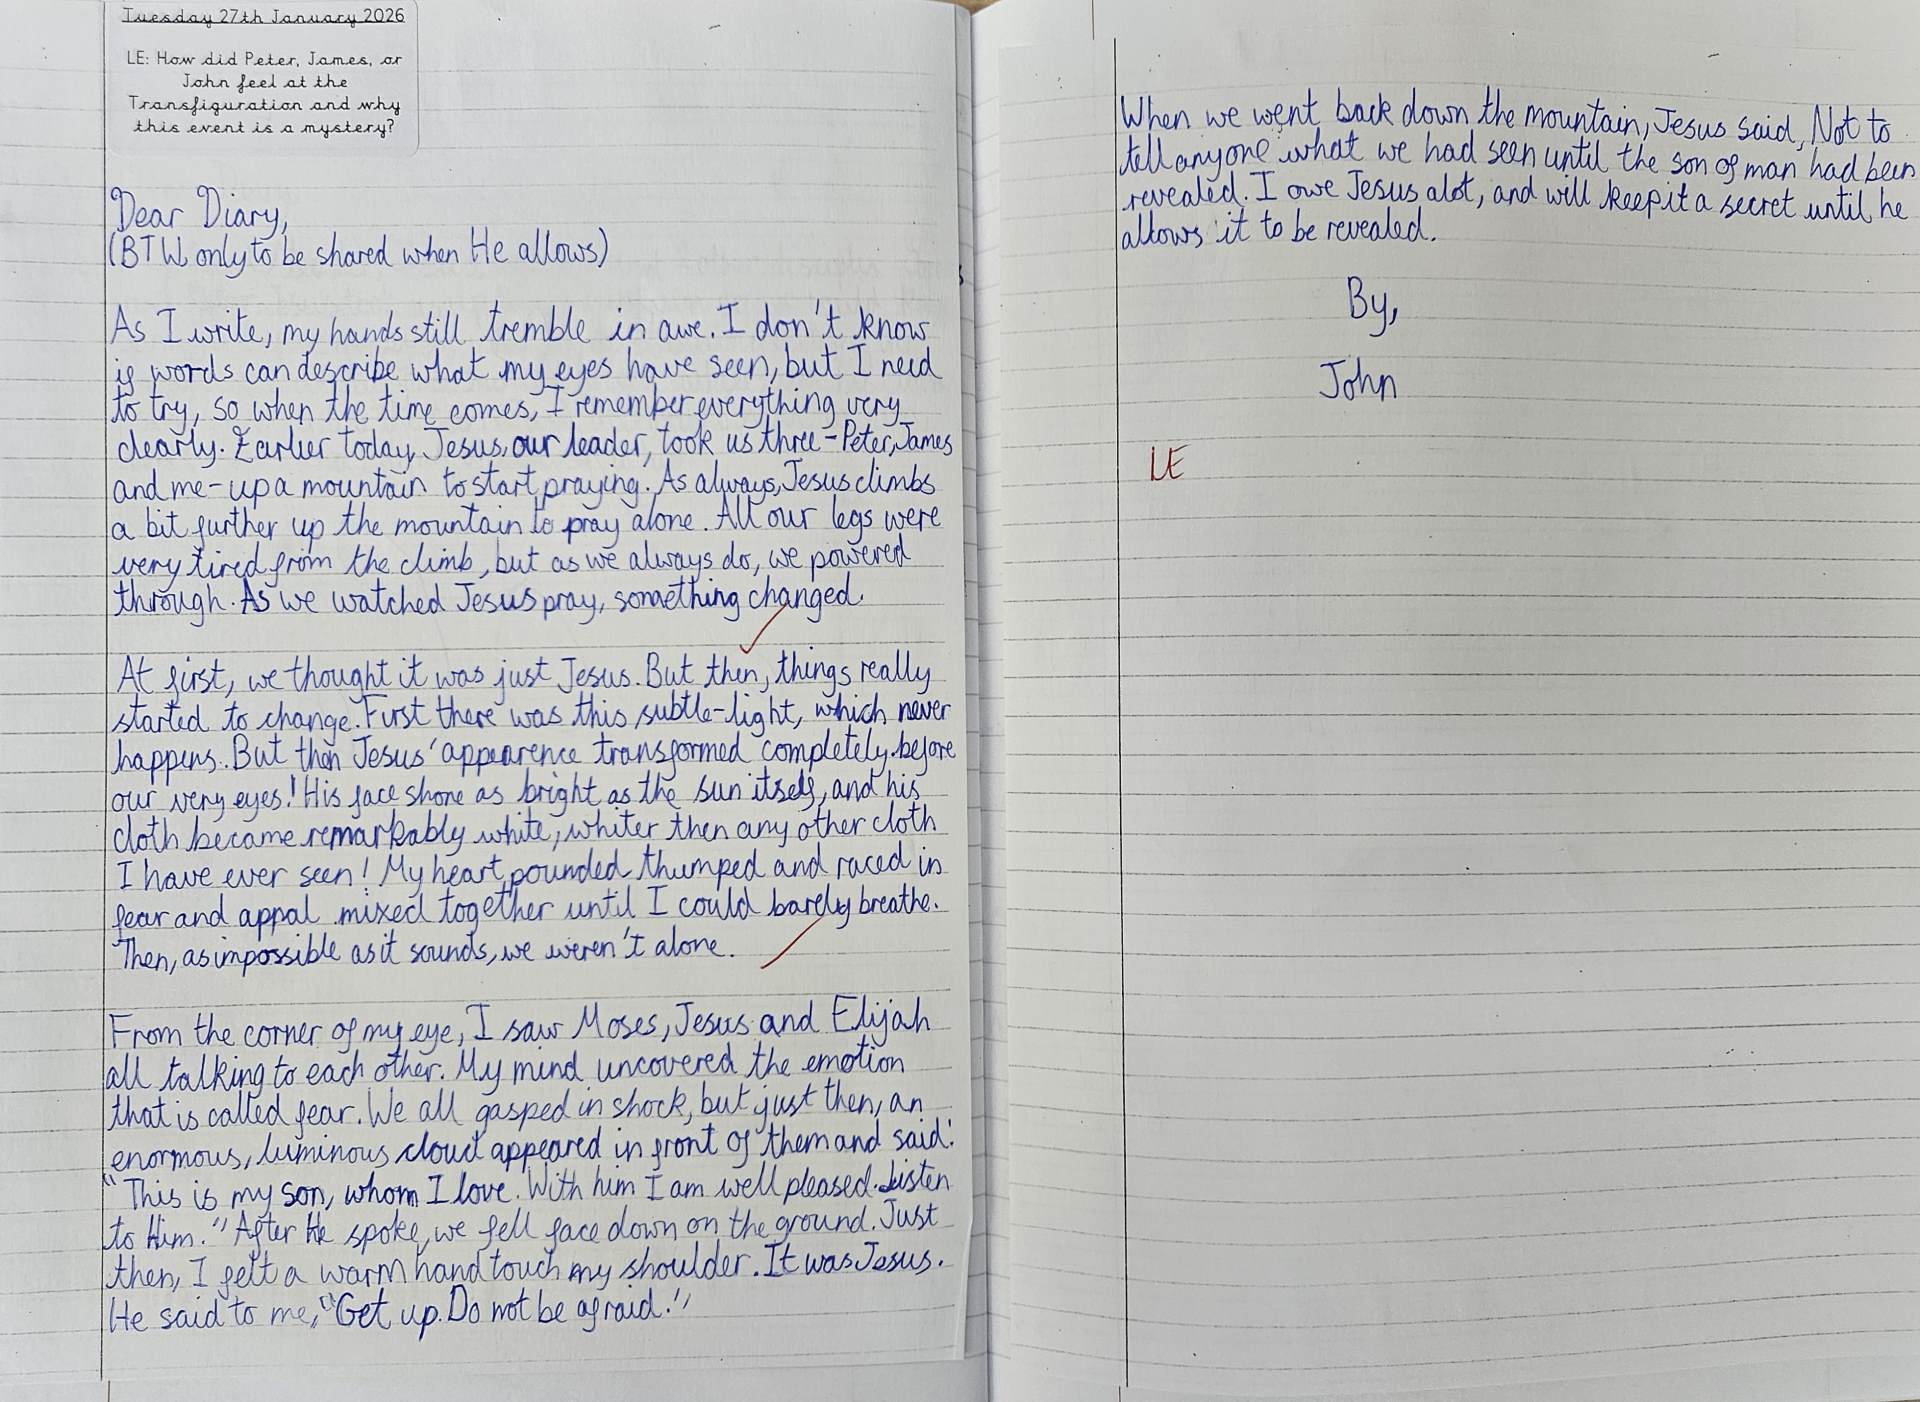 Tuesday 27th January 2026
LE: How did Peter, James, or
John feel at the
Transfiguration and why
this event is a mystery?
Dear Diary,
(BTW only to be shared when He allows)
As I write, my hands still tremble in awe. I don't know
if words can describe what my eyes have seen, but I need
to try, so when the time comes, I remember everything very
clearly. Earlier today, Jesus, our leader, took us three - Peter, James
and me - up a mountain to start praying. As always, Jesus climbs
a bit further up the mountain to pray alone. All our legs were
very tired from the climb, but as we always do, we powered
through. As we watched Jesus pray, something changed.
At first, we thought it was just Jesus. But then, things really
started to change. First there was this subtle-light, which never
happens. But then Jesus' appearence transformed completely before
our very eyes! His face shone as bright as the sun itself, and his
cloth became remarkably white, whiter then any other cloth
I have ever seen! My heart pounded thumped and raced in
fear and appal mixed together until I could barely breathe.
Then, as impossible as it sounds, we weren't alone.
From the corner of my eye, I saw Moses, Jesus and Elijah
all talking to each other. My mind uncovered the emotion
that is called fear. We all gasped in shock, but just then, an
enormous, luminous cloud appeared in front of them and said:
"This is my son, whom I love. With him I am well pleased. Listen
to Him." After He spoke, we fell face down on the ground. Just
then, I felt a warm hand touch my shoulder. It was Jesus.
He said to me, "Get up. Do not be afraid."
When we went back down the mountain, Jesus said, Not to
tell anyone what we had seen until the son of man had been
revealed. I owe Jesus alot, and will keep it a secret until he
allows it to be revealed.
By,
John
LE